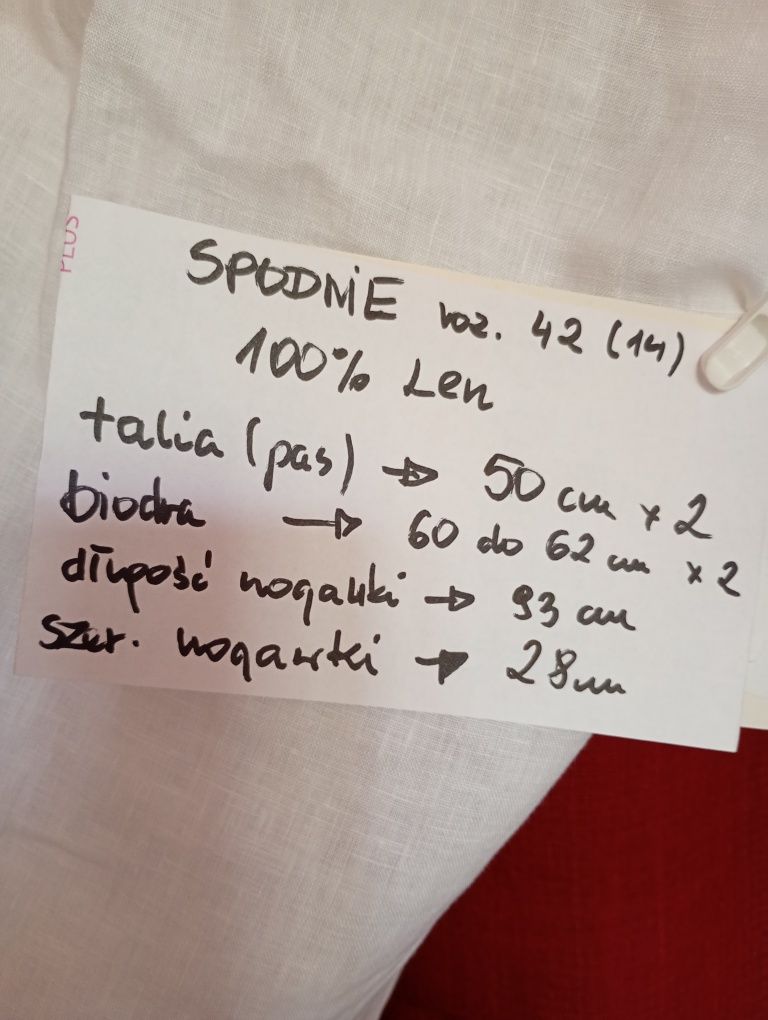 PLUS
SPODNIE roz. 42 (14)
100% Len
talia (pas) → 50 cm x 2
biodra → 60 do 62 cm x 2
długość nogawki → 93 cm
szer. nogawki → 28 cm